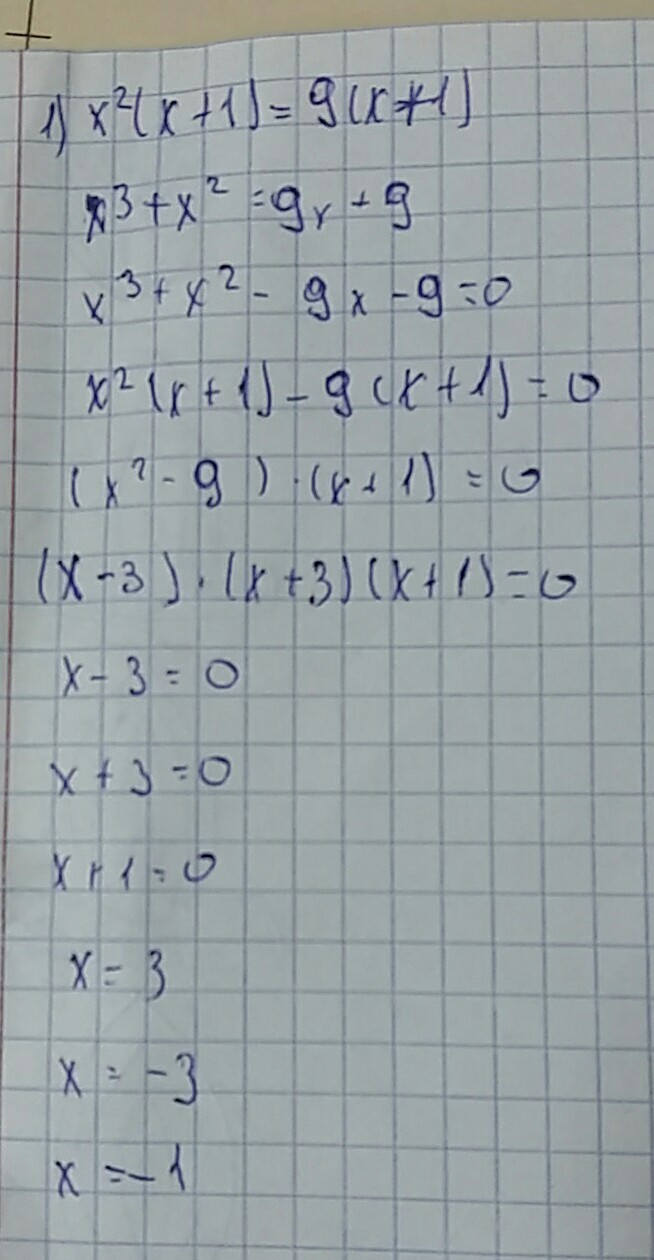 1) x²(x+1)=9(x+1)
x³+x²=9x+9
x³+x²-9x-9=0
x²(x+1)-9(x+1)=0
(x²-9)·(x+1)=0
(x-3)·(x+3)(x+1)=0
x-3=0
x+3=0
x+1=0
x=3
x=-3
x=-1